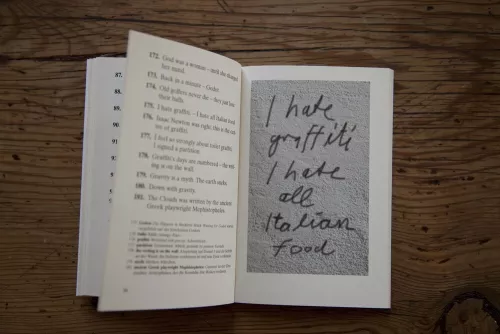 87.
88.
89.
90.
91.
92.
93.
172. God was a woman – until she changed
her mind.
173. Back in a minute – Godot.
174. Old golfers never die – they just lose
their balls.
175. I hate graffiti. – I hate all Italian food.
176. Isaac Newton was right; this is the cen-
tre of graffiti.
177. I feel so strongly about toilet graffiti,
I signed a partition.
178. Graffiti's days are numbered – the writ-
ing is on the wall.
179. Gravity is a myth. The earth sucks.
180. Down with gravity.
181. The Clouds was written by the ancient
Greek playwright Mephistopheles.
I hate
graffiti
I hate
all
Italian
food